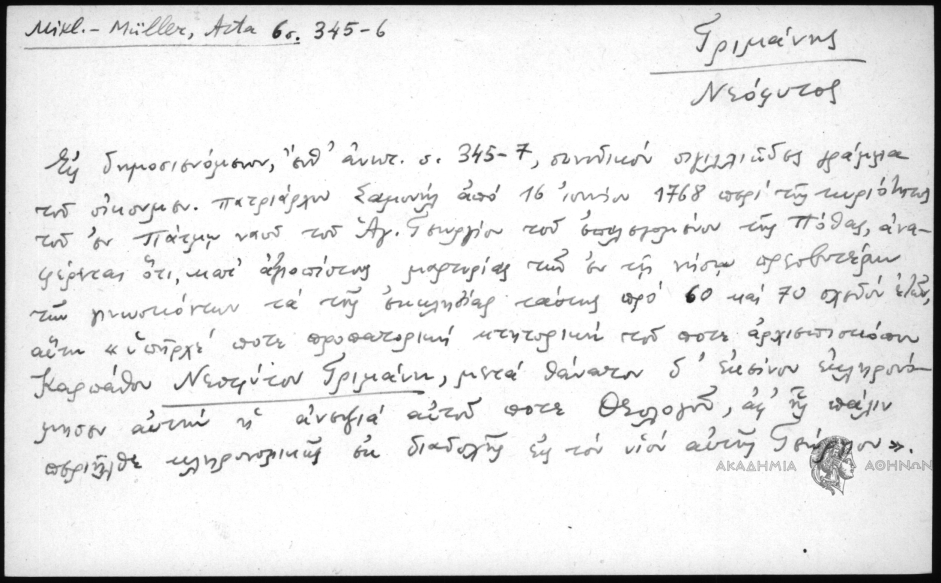 Mikl.- Müller, Acta 6 σ. 345-6
Γριμάνης
Νεόφυτος
Εἰς δημοσιευόμενον, ἐνθ' ἀνωτ. σ. 345-7, συνοδικόν σιγιλλιῶδες γράμμα
τοῦ οἰκουμεν. πατριάρχου Σαμουήλ ἀπό 16 ἰουνίου 1768 περί τῆς κυριότητος
τοῦ ἐν Πάτμῳ ναοῦ τοῦ Ἁγ. Γεωργίου τοῦ ἐπιλεγομένου τῆς Πόθας, ἀνα-
φέρεται ὅτι, κατ' ἀξιοπίστους μαρτυρίας τῶν ἐν τῇ νήσῳ πρεσβυτέρων
τῶν γινωσκόντων τά τῆς ἐκκλησίας ταύτης πρό 60 καί 70 σχεδόν ἐτῶν,
αὕτη « ὑπῆρχέ ποτε προπατορική κτητορική τοῦ ποτε ἀρχιεπισκόπου
Καρπάθου Νεοφύτου Γριμάνη, μετά θάνατον δ' ἐκείνου ἐκληρονό-
μησεν αὐτήν ἡ ἀνεψιά αὐτοῦ ποτε Θεολογοῦ, ἀφ' ἧς πάλιν
περιῆλθε κληρονομικῶς ἐκ διαδοχῆς εἰς τόν υἱόν αὐτῆς Γεώργιον ».
ΑΚΑΔΗΜΙΑ ΑΘΗΝΩΝ